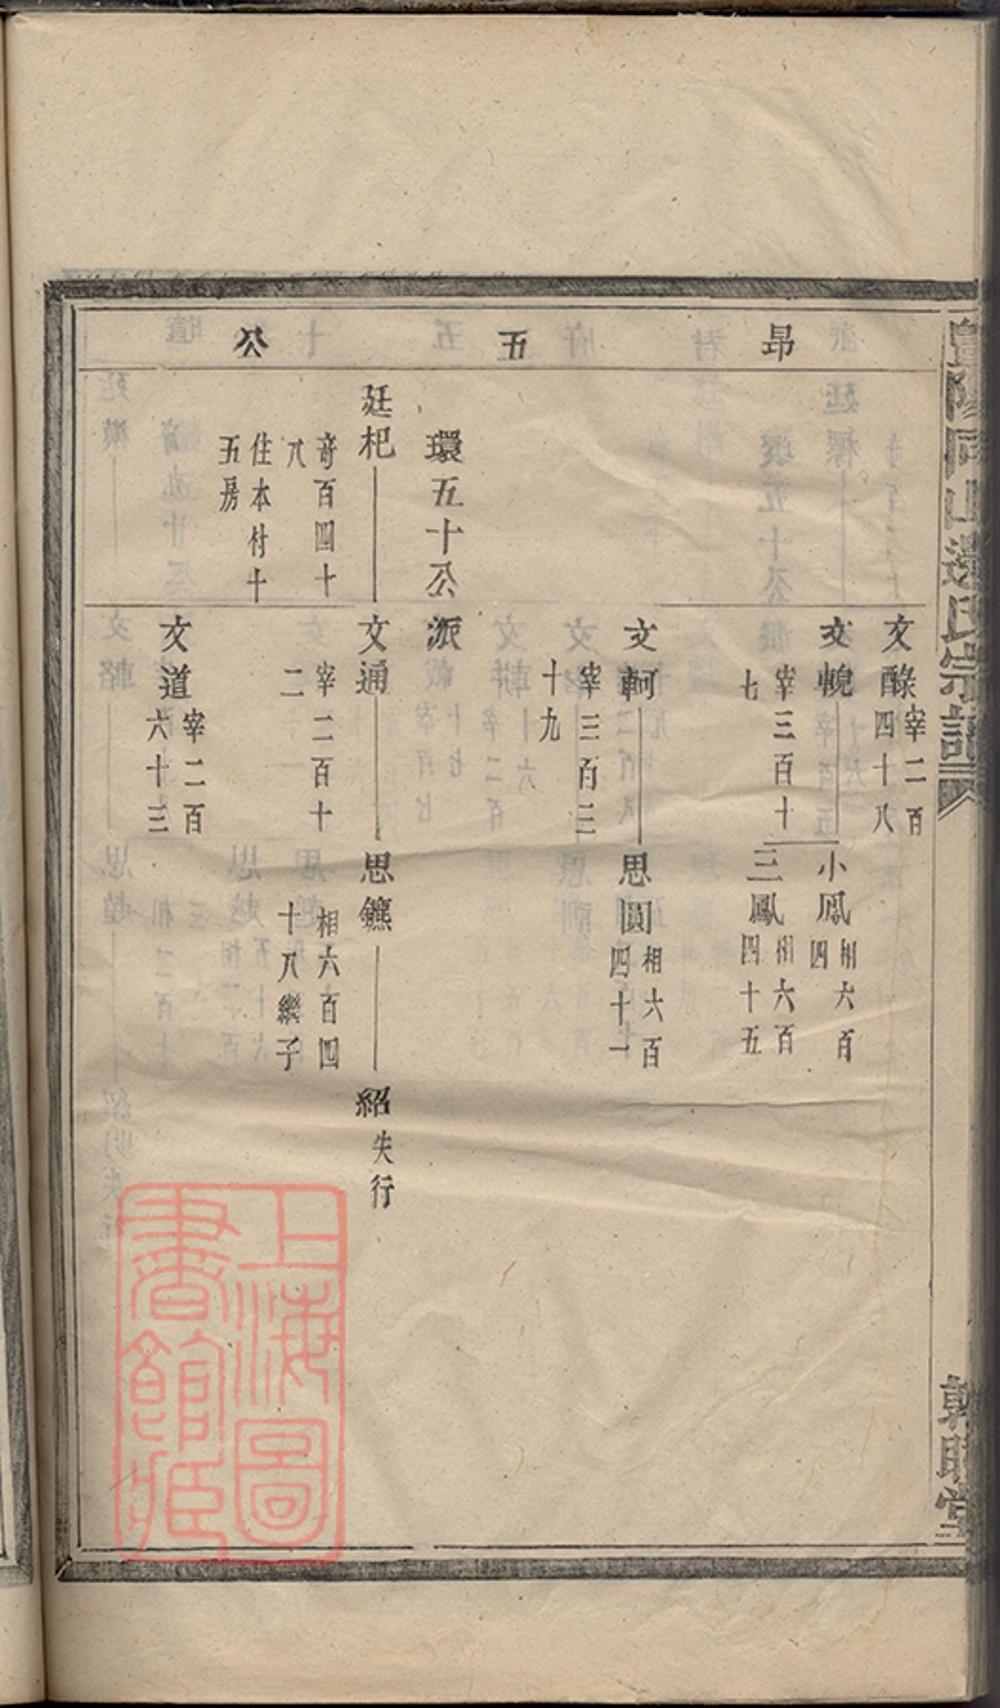 暨陽同山邊氏宗譜
敦睦堂
昂
五
公
文醁
宰二百
四十八
文輗
宰三百十
七
小鳳
相六百
四
三鳳
相六百
四十五
文軻
宰三百三
十九
思圓
相六百
四十一
環五十公派
廷杷
奇百四十
八
住本村十
五房
文通
宰二百十
二
思鑣
相六百四
十八繼子
紹
失行
文道
宰二百
六十三
上海圖
書館藏